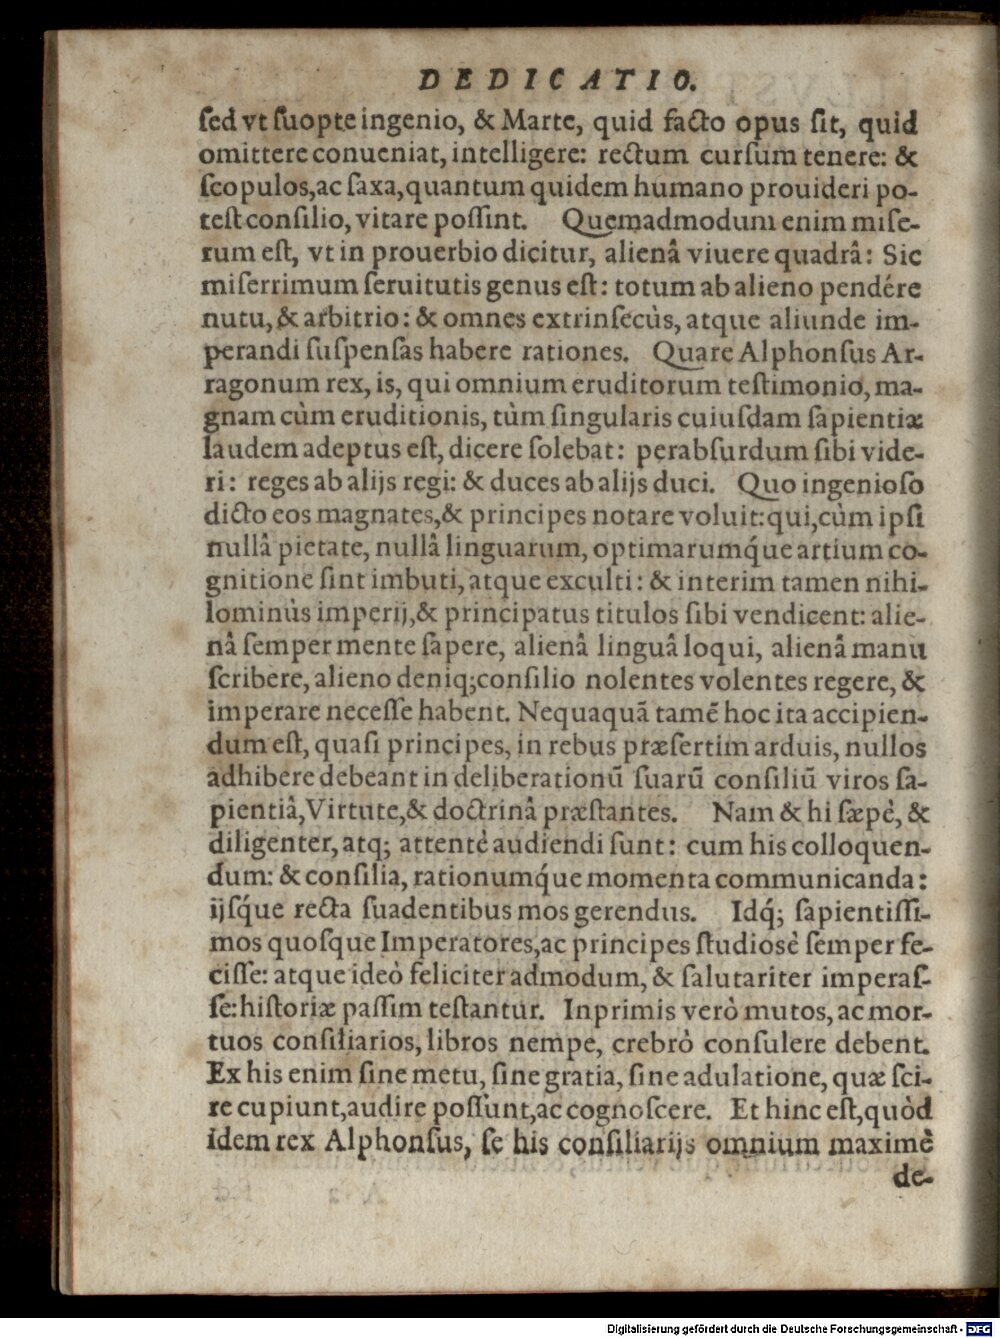 DEDICATIO.
ſed vt ſuopte ingenio, & Marte, quid facto opus ſit, quid
omittere conueniat, intelligere: rectum curſum tenere: &
ſcopulos, ac ſaxa, quantum quidem humano prouideri po-
teſt conſilio, vitare poſſint. Quemadmodum enim miſe-
rum eſt, vt in prouerbio dicitur, alienâ viuere quadrâ: Sic
miſerrimum ſeruitutis genus eſt: totum ab alieno pendére
nutu, & arbitrio: & omnes extrinſecùs, atque aliunde im-
perandi ſuſpenſas habere rationes. Quare Alphonſus Ar-
ragonum rex, is, qui omnium eruditorum teſtimonio, ma-
gnam cùm eruditionis, tùm ſingularis cuiuſdam ſapientiæ
laudem adeptus eſt, dicere ſolebat: perabſurdum ſibi vide-
ri: reges ab alijs regi: & duces ab alijs duci. Quo ingenioſo
dicto eos magnates, & principes notare voluit: qui, cùm ipſi
nullâ pietate, nullâ linguarum, optimarumq́ue artium co-
gnitione ſint imbuti, atque exculti: & interim tamen nihi-
lominùs imperij, & principatus titulos ſibi vendicent: alie-
nâ ſemper mente ſapere, alienâ linguâ loqui, alienâ manu
ſcribere, alieno deniq; conſilio nolentes volentes regere, &
imperare neceſſe habent. Nequaquã tamẽ hoc ita accipien-
dum eſt, quaſi principes, in rebus præſertim arduis, nullos
adhibere debeant in deliberationũ ſuarũ conſiliũ viros ſa-
pientiâ, Virtute, & doctrinâ præſtantes. Nam & hi ſæpè, &
diligenter, atq; attentè audiendi ſunt: cum his colloquen-
dum: & conſilia, rationumq́ue momenta communicanda:
ijſq́ue recta ſuadentibus mos gerendus. Idq́; ſapientiſſi-
mos quoſque Imperatores, ac principes ſtudiosè ſemper fe-
ciſſe: atque ideò feliciter admodum, & ſalutariter imperaſ-
ſe: hiſtoriæ paſſim teſtantur. Inprimis verò mutos, ac mor-
tuos conſiliarios, libros nempe, crebrò conſulere debent.
Ex his enim ſine metu, ſine gratia, ſine adulatione, quæ ſci-
re cupiunt, audire poſſunt, ac cognoſcere. Et hinc eſt, quòd
idem rex Alphonſus, ſe his conſiliarijs omnium maximè
de-
Digitalisierung gefördert durch die Deutsche Forschungsgemeinschaft - DFG